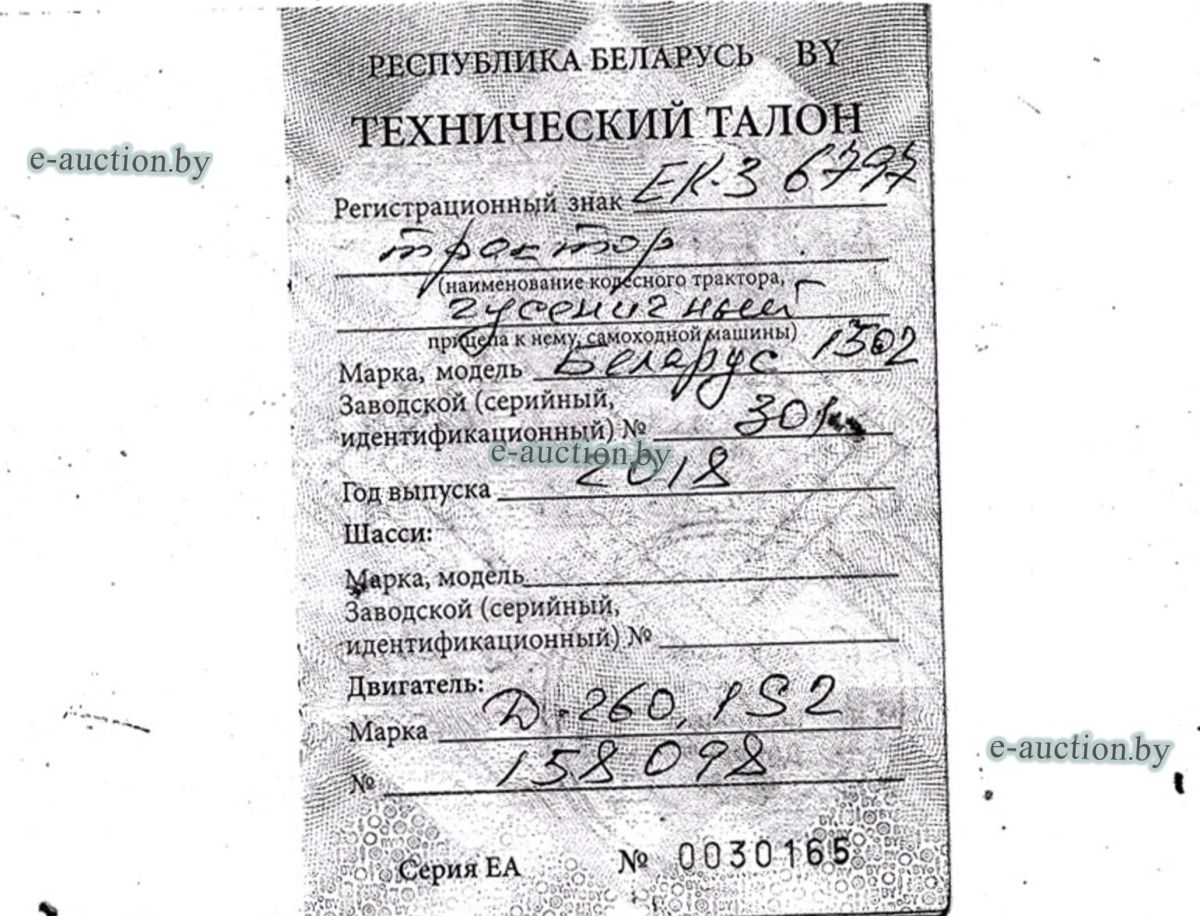 РЕСПУБЛИКА БЕЛАРУСЬ BY
ТЕХНИЧЕСКИЙ ТАЛОН
e-auction.by
Регистрационный знак ЕК-3 6797
трактор
(наименование колесного трактора,
гусеничный
прицепа к нему, самоходной машины)
Марка, модель Беларус 1502
Заводской (серийный,
идентификационный) № 301
e-auction.by
Год выпуска 2018
Шасси:
Марка, модель
Заводской (серийный,
идентификационный) №
Двигатель:
Марка Д-260,1S2
e-auction.by
№ 158098
Серия ЕА № 0030165